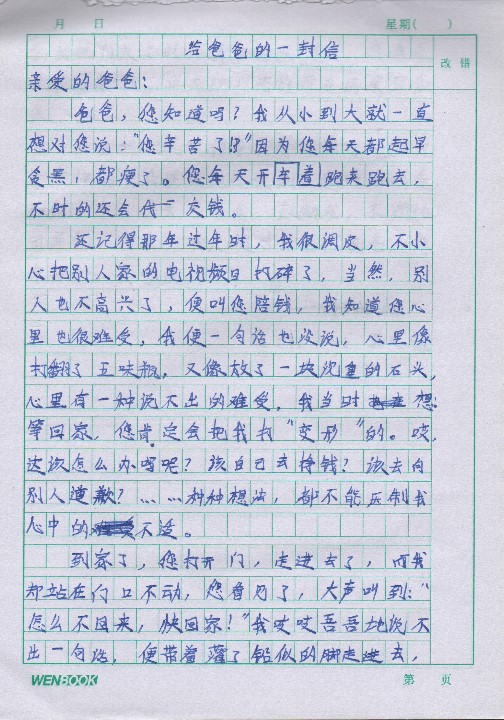 月 日 星期( )
给爸爸的一封信
改错
亲爱的爸爸：
爸爸，您知道吗？我从小到大就一直
想对您说："您辛苦了！"因为您每天都起早
贪黑，都瘦了。您每天开车着跑来跑去，
不时的还会代一次钱。
还记得那年过年时，我很调皮，不小
心把别人家的电视频目打碎了，当然，别
人也不高兴了，便叫您赔钱，我知道您心
里也很难受，我便一句话也没说，心里像
打翻了五味瓶，又像放了一块沈重的石头，
心里有一种说不出的难受。我当时想：
等回家，您肯定会把我打"变形"的。哎，
这该怎么办呢？该自己去挣钱？该去向
别人道歉？……种种想法，都不能压制我
心中的不适。
到家了，您打开门，走进去了，而我
却站在门口不动，您看见了，大声叫到："
怎么不回来，快回家！"我哎哎吾吾地说不
出一句话，便带着落了铅似的脚走进去，
WENBOOK 第 页